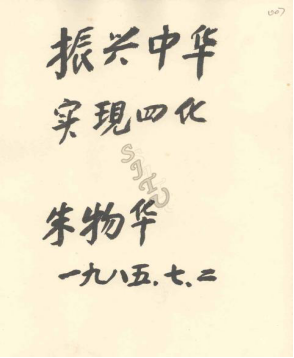 振兴中华
实現四化
SJTU
朱物华
一九八五.七.二